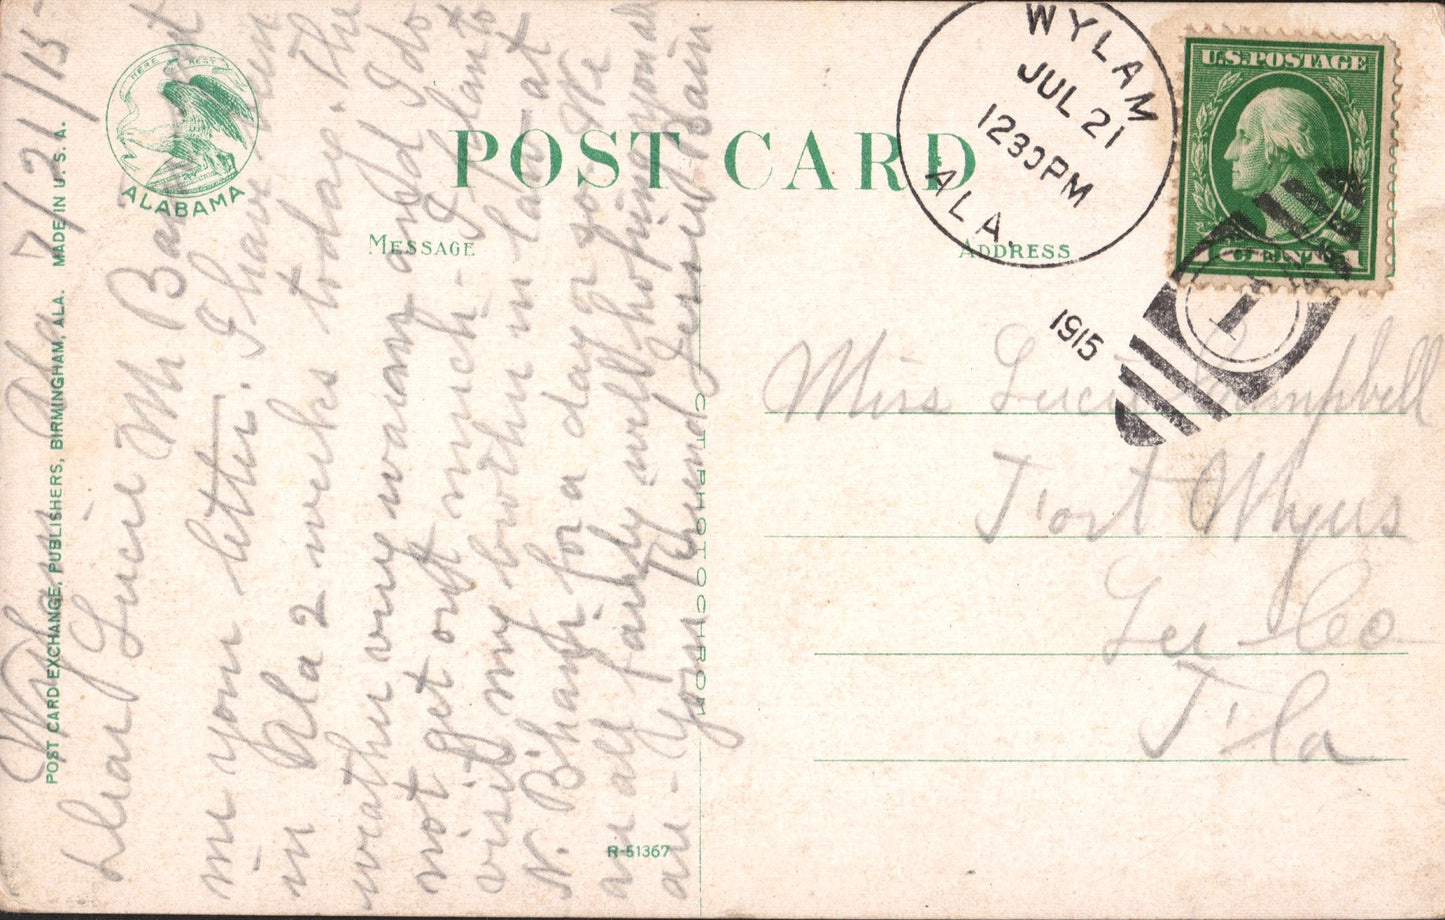 HERE WE REST
ALABAMA
POST CARD
MESSAGE
ADDRESS
WYLAM
JUL 21
1230PM
ALA.
1915
U.S. POSTAGE
1 CENT 1
1
POST CARD EXCHANGE, PUBLISHERS, BIRMINGHAM, ALA. MADE IN U. S. A.
OCTOPHOTOCHROM
R-51367
Wylam Ala 7/21/15
Dear Lucie Mr B sent
me your letter. I have been
in Ala 2 weeks today. The
weather very warm and I do
not get out much - I plan to
visit my brother in law at
N. B'ham for a day or so. We
are all fairly well hoping you all
are - Your friend Jessie Bain
Miss Lucie Campbell
Fort Myers
Lee Co
Fla